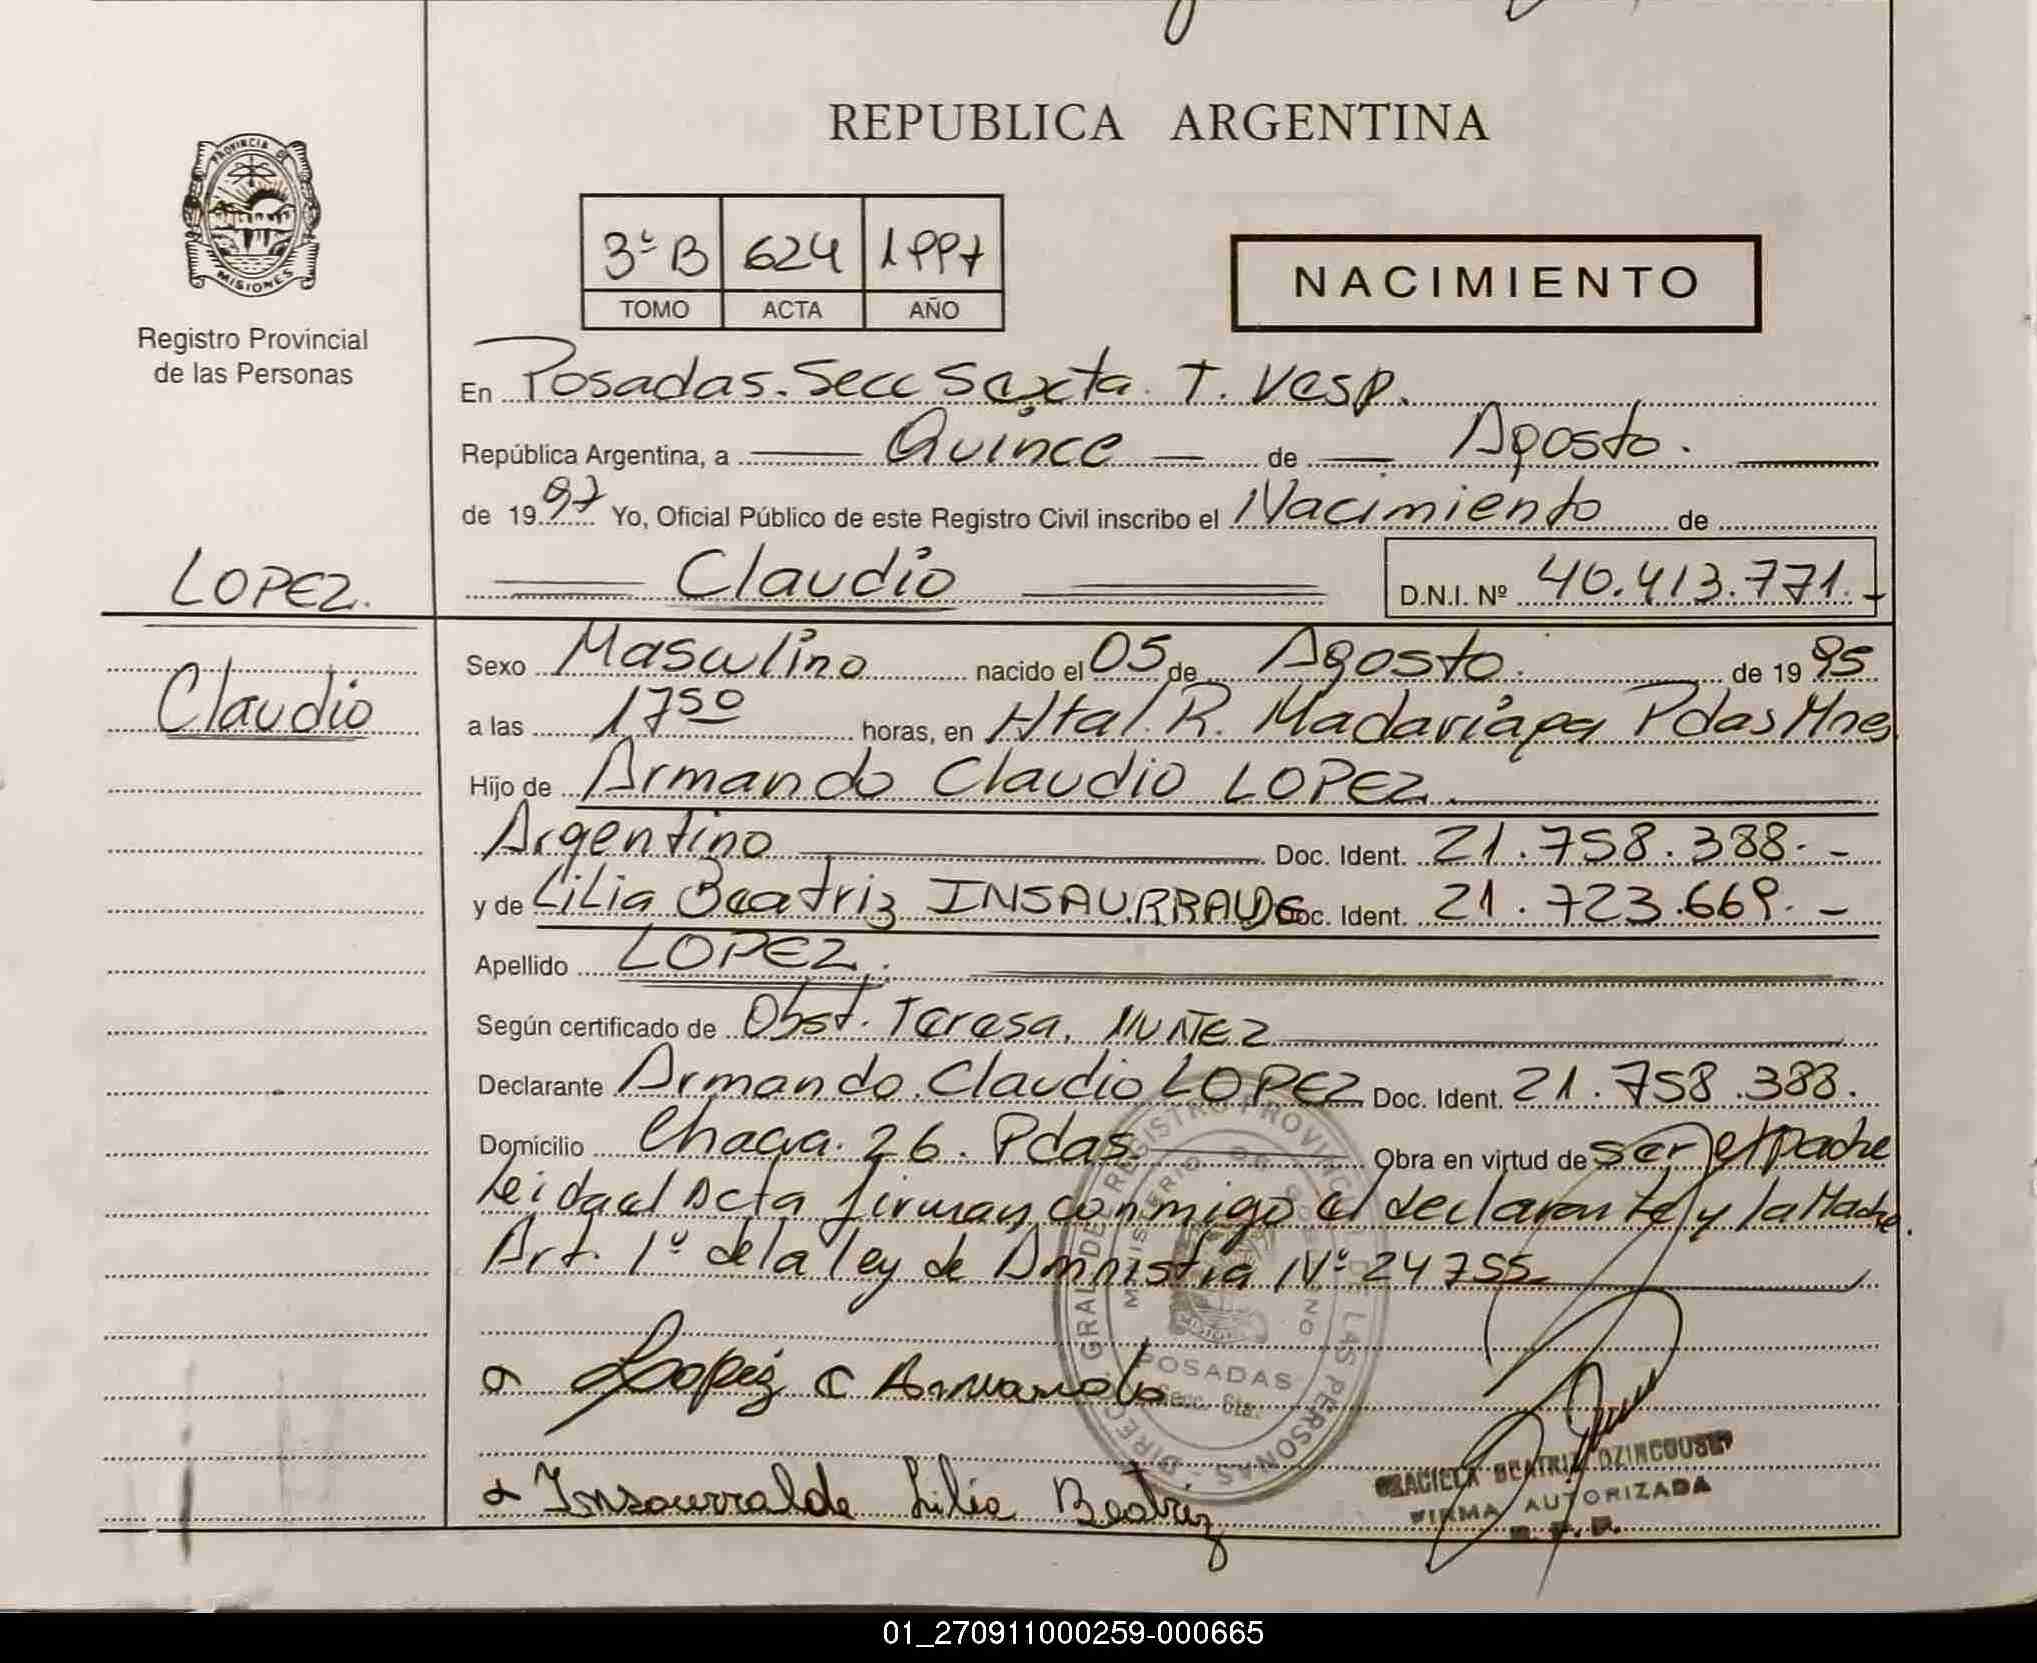 REPUBLICA ARGENTINA
PROVINCIA DE
MISIONES
Registro Provincial
de las Personas
3º B 624 1997
TOMO ACTA AÑO
NACIMIENTO
En Posadas. Secc Sexta. T. Vesp.
República Argentina, a Quince de Agosto.
de 1997 Yo, Oficial Público de este Registro Civil inscribo el Nacimiento de
LOPEZ.
Claudio
Claudio D.N.I. Nº 40.413.771.-
Sexo Masculino nacido el 05 de Agosto. de 1995
a las 17 50 horas, en Htal. R. Madariaga Pdas Mnes
Hijo de Armando Claudio LOPEZ
Argentino Doc. Ident. 21.758.388.-
y de Lilia Beatriz INSAURRALDE Doc. Ident. 21.723.669.-
Apellido LOPEZ.
Según certificado de Obst. Teresa. NUÑEZ
Declarante Armando Claudio LOPEZ Doc. Ident. 21.758.388.
Domicilio Chacra 26. Pdas. Obra en virtud de ser el padre
Leida el Acta firman conmigo el declarante y la Madre.
Art. 1º de la ley de Amnistia Nº 24755
Lopez C Armando
Insaurralde Lilia Beatriz
DIREC. GRAL. DE REGISTRO PROVINCIAL DE LAS PERSONAS
MINISTERIO DE GOBIERNO
POSADAS
Secc. 6ta.
GRACIELA BEATRIZ
FIRMA AUTORIZADA
R. P. P.
01_270911000259-000665